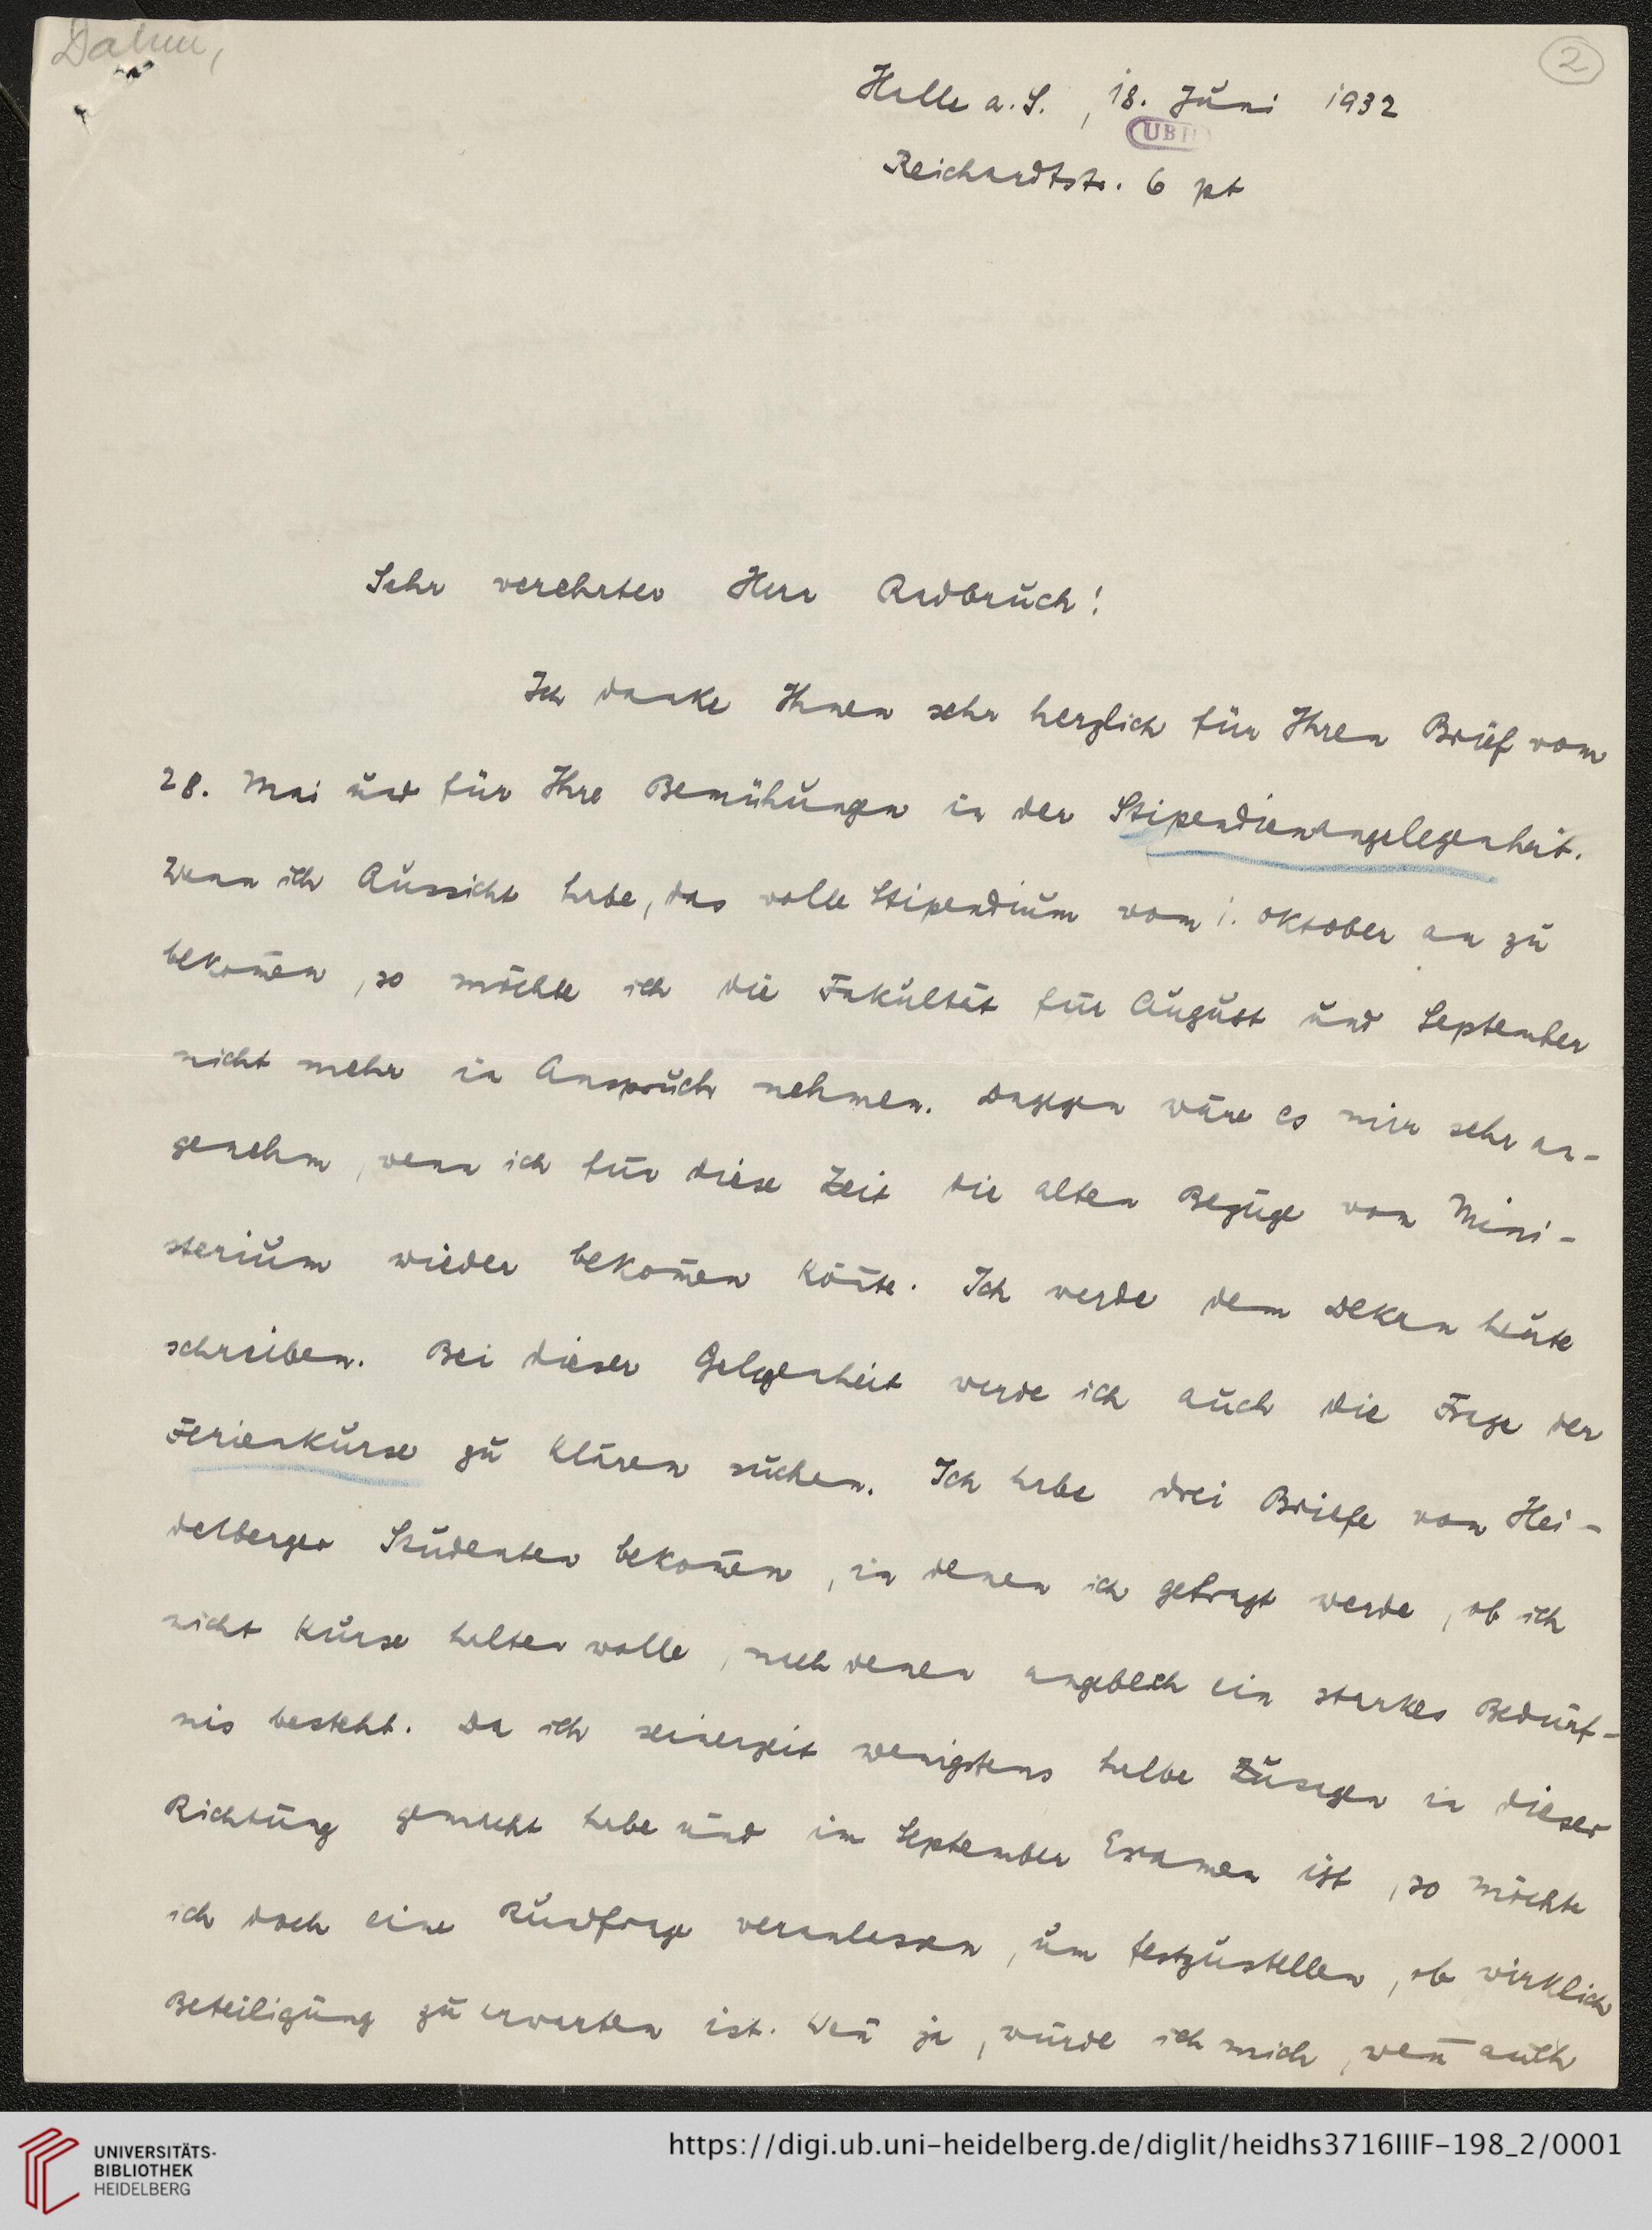 Dahm,
2
Halle a. S., 18. Juni 1932
UBH
Reichardtstr. 6 pt
Sehr verehrter Herr Radbruch!
Ich danke Ihnen sehr herzlich für Ihren Brief vom
28. Mai und für Ihre Bemühungen in der Stipendienangelegenheit.
Wenn ich Aussicht habe, das volle Stipendium vom 1. Oktober an zu
bekom̅en, so möchte ich die Fakultät für August und September
nicht mehr in Anspruch nehmen. Dagegen wäre es mir sehr an-
genehm, wenn ich für diese Zeit die alten Bezüge vom Mini-
sterium wieder bekom̅en kön̅te. Ich werde dem Dekan heute
schreiben. Bei dieser Gelegenheit werde ich auch die Frage der
Ferienkurse zu klären suchen. Ich habe drei Briefe von Hei-
delberger Studenten bekom̅en, in denen ich gefragt werde, ob ich
nicht Kurse halten wolle, nach denen angeblich ein starkes Bedürf-
nis besteht. Da ich seinerzeit wenigstens halbe Zusagen in dieser
Richtung gemacht habe und im September Examen ist, so möchte
ich doch eine Rundfrage veranlassen, um festzustellen, ob wirklich
Beteiligung zu erwarten ist. Wen̅ ja, würde ich mich, wen̅ auch
UNIVERSITÄTS-
BIBLIOTHEK
HEIDELBERG
https://digi.ub.uni-heidelberg.de/diglit/heidhs3716IIIF-198_2/0001